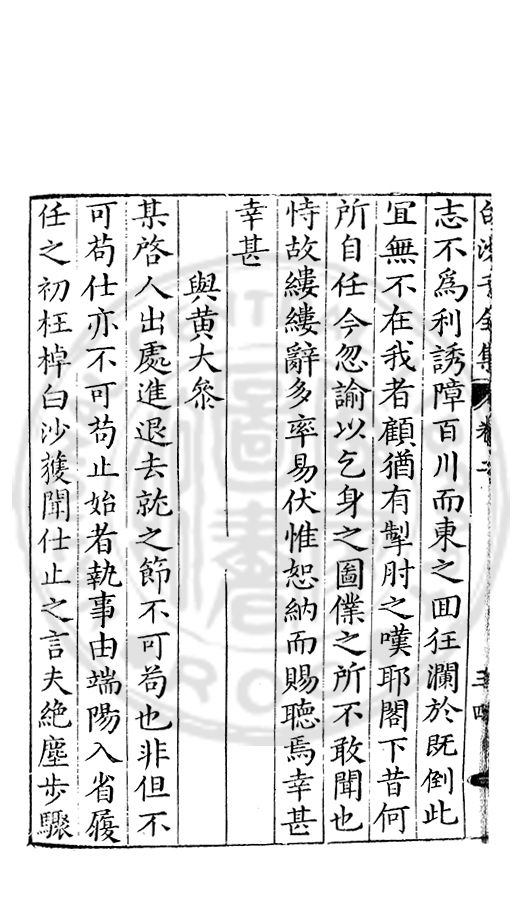 白沙子全集 卷之
志不爲利誘障百川而東之囬狂瀾於既倒此
宜無不在我者顧猶有掣肘之嘆耶閣下昔何
所自任今忽諭以乞身之圖僕之所不敢聞也
恃故縷縷辭多率易伏惟恕納而賜聽焉幸甚
幸甚
與黄大參
某啓人出處進退去就之節不可苟也非但不
可苟仕亦不可苟止始者執事由端陽入省履
任之初枉棹白沙獲聞仕止之言夫絶塵步驟